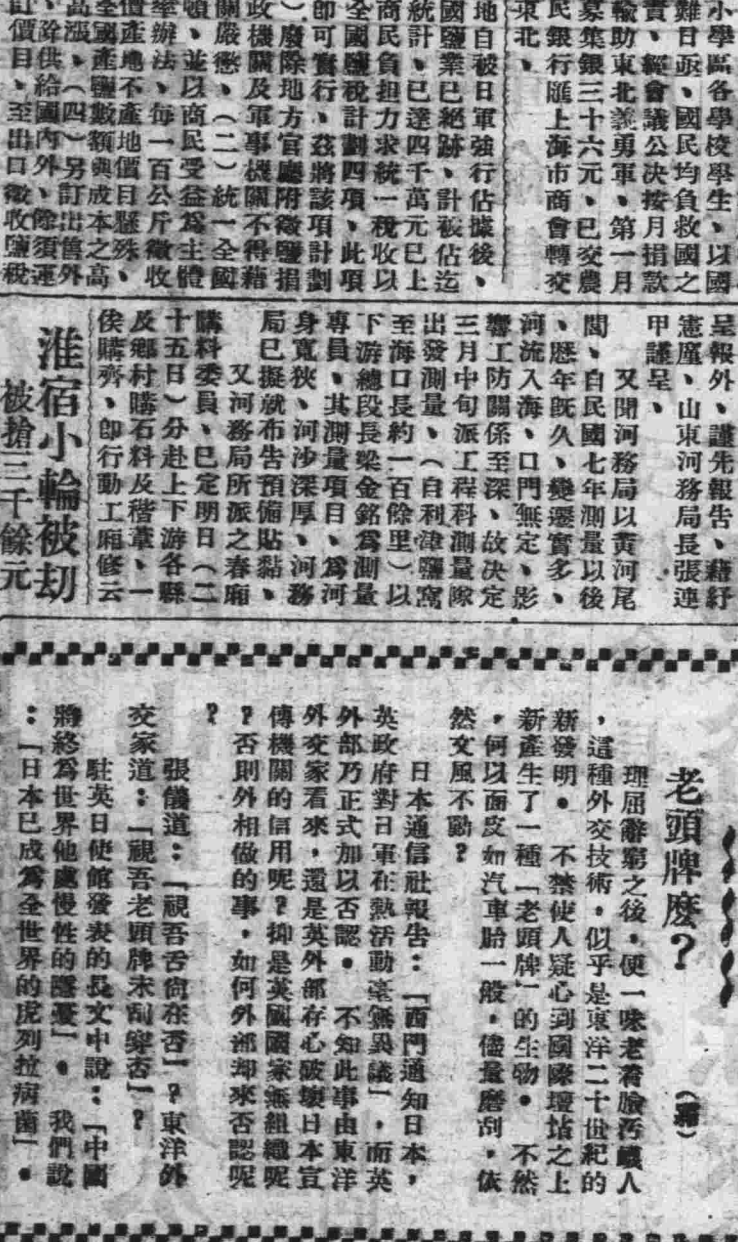 小學區各學校學生、以國
難日亟、國民均負救國之
責、經會議公決按月捐款
輸助東北義勇軍、第一月
募集銀三十六元、已交農
民銀行匯上海市商會轉交
東北、
地自被日軍強行佔據後、
國鹽業已絕跡、計被佔迄
統計、已達四千萬元已上
商民負担力求統一稅收以
全國鹽稅計劃四項、此項
即可實行、茲將該項計劃
）廢除地方官廳附徵鹽捐
政機關及軍事機關不得藉
關嚴懲、（二）統一全國
頓、並以商民受益爲主體
舉辦法、每一百公斤徵收
價產地不產地價目懸殊、
全國產鹽數額與成本之高
高漲、（四）另訂出售外
、除供給國內外、餘須運
訂價目、至出口徵收鹽稅
呈報外、謹先報告、藉紓
憲廑、山東河務局長張連
甲謹呈、
又聞河務局以黃河尾
閭、自民國七年測量以後
、歷年旣久、變遷實多、
河流入海、口門無定、影
響工防關係至深、故決定
三月中旬派工程科測量隊
出發測量、（自利津鹽窩
至海口長約一百餘里）以
下游總段長梁金銘爲測量
專員、其測量項目、爲河
身寬狹、河沙深厚、河務
局已擬就布告預備貼黏、
又河務局所派之春廂
購料委員、已定明日（二
十五日）分赴上下游各縣
及鄉村購石料及稭葦、一
俟購齊、卽行動工廂修云
淮宿小輪被劫
被搶三千餘元
老頭牌麽？
（霜）
理屈辭窮之後，便一味老着臉汚衊人
，這種外交技術，似乎是東洋二十世紀的
新發明。不禁使人疑心到國際壇坫之上
新產生了一種「老頭牌」的生物。不然
，何以面皮如汽車胎一般，儘量磨刮，依
然文風不動？
日本通信社報告：「西門通知日本，
英政府對日軍在熱活動毫無異議」，而英
外部乃正式加以否認。不知此事由東洋
外交家看來，還是英外部存心破壞日本宣
傳機關的信用呢？抑是英國國家無組織呢
？否則外相做的事，如何外部却來否認呢
？
張儀道：「視吾舌尙在否」？東洋外
交家道：「視吾老頭牌末刮穿否」？
駐英日使館發表的長文中說：「中國
將終爲世界他處慢性的隱憂」。我們說
：「日本已成爲全世界的虎列拉病菌」。